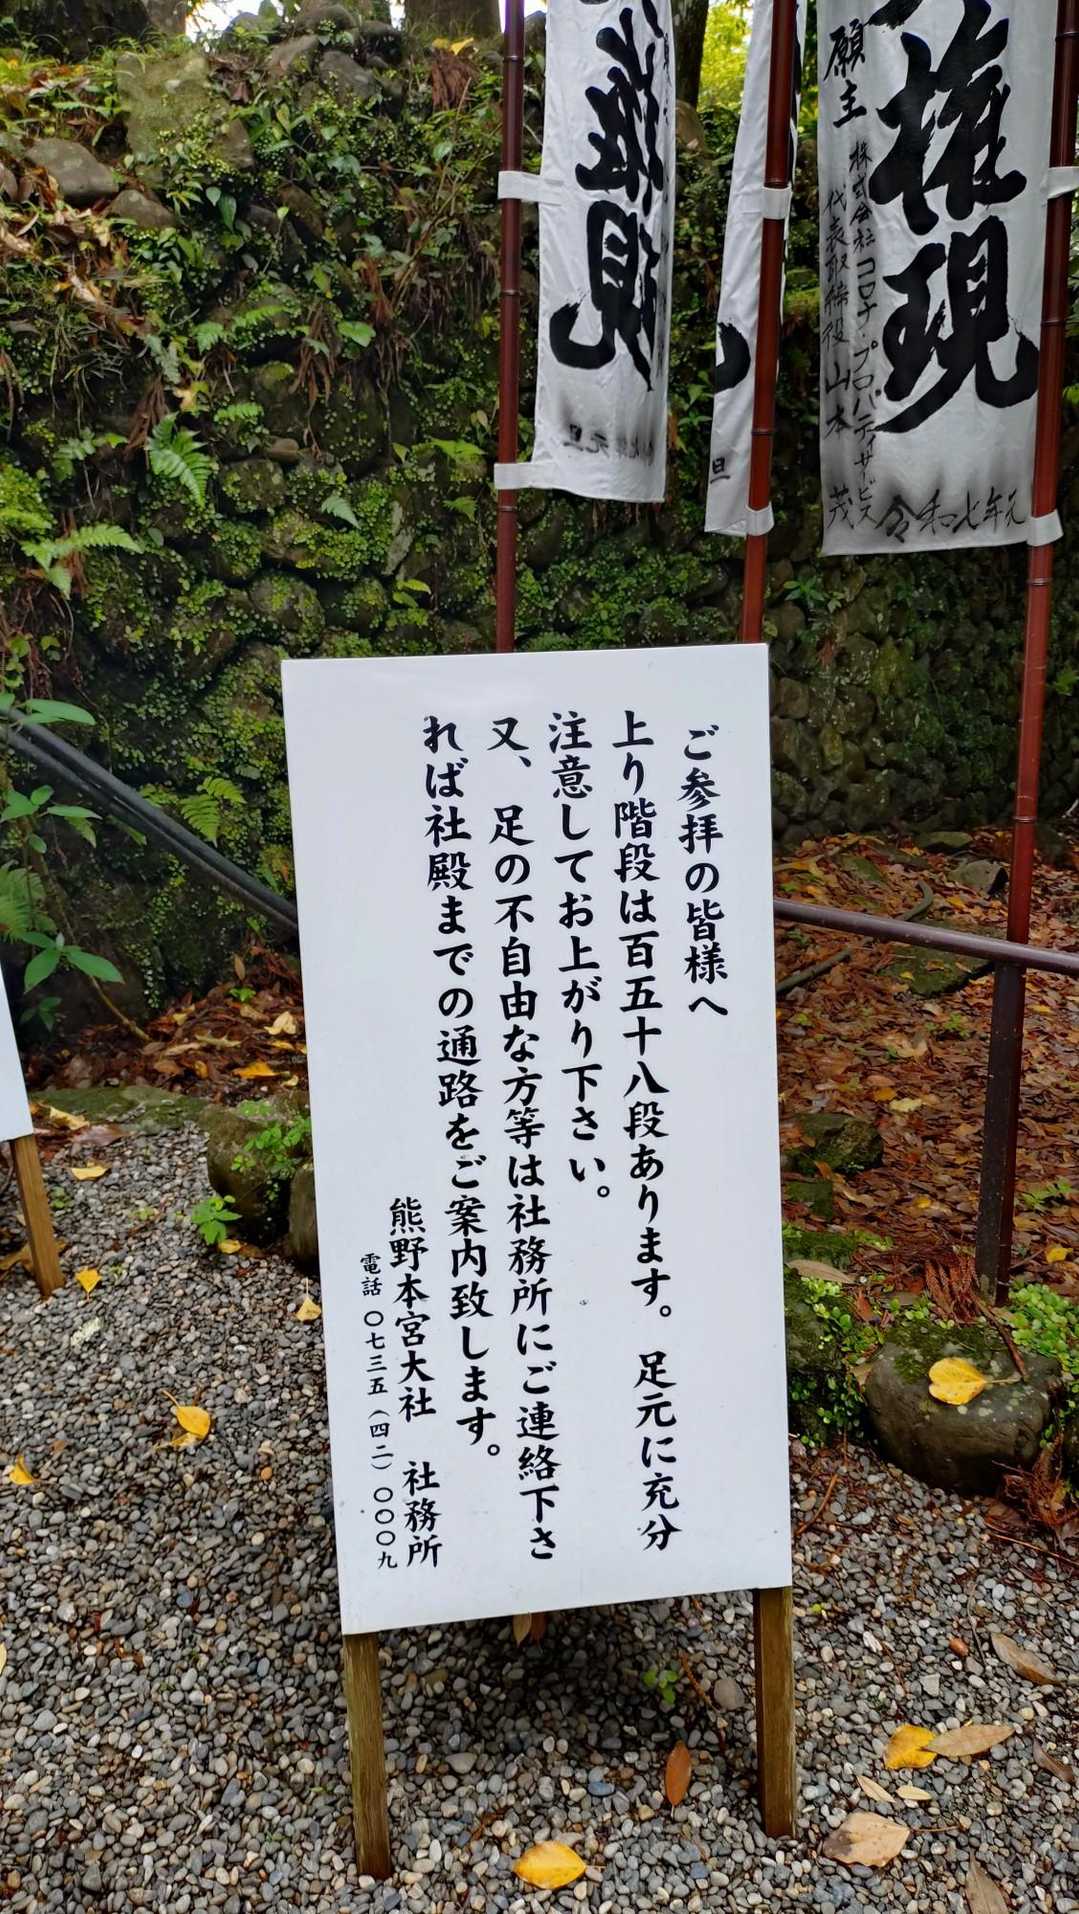 ご参拝の皆様へ
上り階段は百五十八段あります。足元に充分
注意してお上がり下さい。
又、足の不自由な方等は社務所にご連絡下さ
れば社殿までの通路をご案内致します。
熊野本宮大社 社務所
電話 〇七三五(四二)〇〇〇九
権現
令和七年元
願主
株式会社コロナ・プロパティサービス
代表取締役 山本 茂
旦